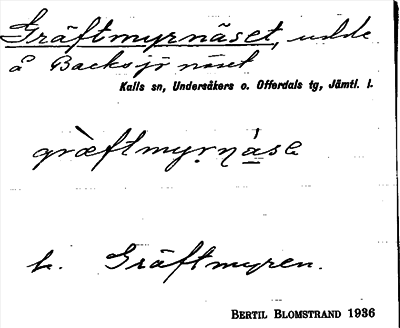 Gräftmyrnäset, udde
å Backsjönäset
Kalls sn, Undersåkers o. Offerdals tg, Jämtl. l.
græ̀ftmyṛṇàse
h. Gräftmyren.
BERTIL BLOMSTRAND 1936